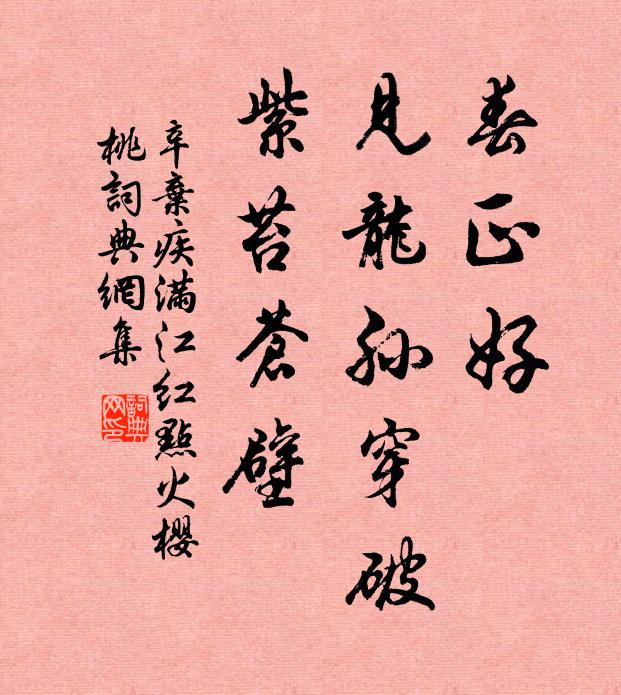 春正好
見龍孫穿破
紫苔蒼壁
辛棄疾滿江紅點火櫻
桃詞典網集
詞典網印